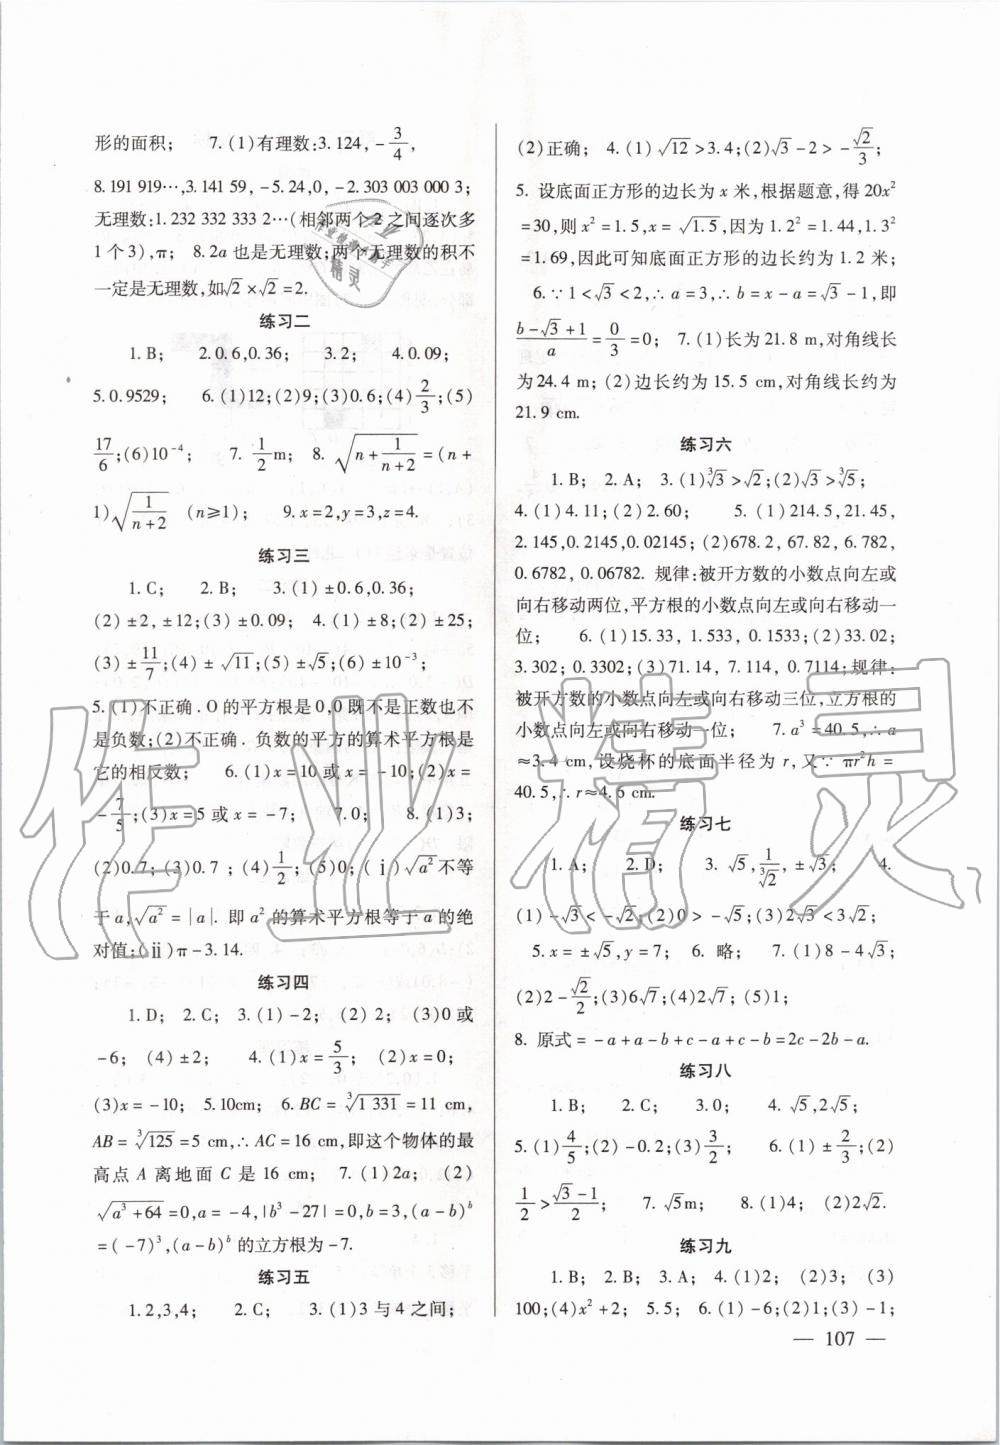 形的面积； 7.(1)有理数:3.124,-3/4,
8.191 919…,3.141 59,-5.24,0,-2.303 003 000 3;
无理数:1.232 332 333 2…(相邻两个2之间逐次多
1个3),π; 8.2a也是无理数;两个无理数的积不
一定是无理数,如√2×√2=2.
练习二
1.B; 2.0.6,0.36; 3.2; 4.0.09;
5.0.9529; 6.(1)12;(2)9;(3)0.6;(4)2/3;(5)
17/6;(6)10⁻⁴; 7.1/2m; 8.√(n+1/(n+2))=(n+
1)√(1/(n+2)) (n≥1); 9.x=2,y=3,z=4.
练习三
1.C; 2.B; 3.(1)±0.6,0.36;
(2)±2,±12;(3)±0.09; 4.(1)±8;(2)±25;
(3)±11/7;(4)±√11;(5)±√5;(6)±10⁻³;
5.(1)不正确.O的平方根是0,0既不是正数也不
是负数;(2)不正确.负数的平方的算术平方根是
它的相反数; 6.(1)x=10或x=-10;(2)x=
-7/5;(3)x=5或x=-7; 7.0; 8.(1)3;
(2)0.7;(3)0.7;(4)1/2;(5)0;(ⅰ)√a²不等
于a,√a²=|a|.即a²的算术平方根等于a的绝
对值;(ⅱ)π-3.14.
练习四
1.D; 2.C; 3.(1)-2; (2)2; (3)0或
-6; (4)±2; 4.(1)x=5/3; (2)x=0;
(3)x=-10; 5.10cm; 6.BC=³√1 331=11 cm,
AB=³√125=5 cm,∴AC=16 cm,即这个物体的最
高点A离地面C是16 cm; 7.(1)2a; (2)
√(a³+64)=0,a=-4,|b³-27|=0,b=3,(a-b)ᵇ
=(-7)³,(a-b)ᵇ的立方根为-7.
练习五
1.2,3,4; 2.C; 3.(1)3与4之间;
(2)正确; 4.(1)√12>3.4;(2)√3-2>-√2/3;
5. 设底面正方形的边长为x米,根据题意,得20x²
=30,则x²=1.5,x=√1.5,因为1.2²=1.44,1.3²
=1.69,因此可知底面正方形的边长约为1.2米;
6.∵1<√3<2,∴a=3,∴b=x-a=√3-1,即
(b-√3+1)/a=0/3=0; 7.(1)长为21.8 m,对角线长
为24.4 m;(2)边长约为15.5 cm,对角线长约为
21.9 cm.
练习六
1.B; 2.A; 3.(1)³√3>√2;(2)√3>³√5;
4.(1)4.11;(2)2.60; 5.(1)214.5,21.45,
2.145,0.2145,0.02145;(2)678.2,67.82,6.782,
0.6782,0.06782.规律:被开方数的小数点向左或
向右移动两位,平方根的小数点向左或向右移动一
位; 6.(1)15.33,1.533,0.1533;(2)33.02;
3.302;0.3302;(3)71.14,7.114,0.7114;规律:
被开方数的小数点向左或向右移动三位,立方根的
小数点向左或向右移动一位; 7.a³=40.5,∴a
≈3.4 cm,设烧杯的底面半径为r,又∵πr²h=
40.5,∴r≈4.6 cm.
练习七
1.A; 2.D; 3.√5,1/³√2,±√3; 4.
(1)-√3<-√2;(2)0>-√5;(3)2√3<3√2;
5.x=±√5,y=7; 6.略; 7.(1)8-4√3;
(2)2-√2/2;(3)6√7;(4)2√7;(5)1;
8. 原式=-a+a-b+c-a+c-b=2c-2b-a.
练习八
1.B; 2.C; 3.0; 4.√5,2√5;
5.(1)4/5;(2)-0.2;(3)3/2; 6.(1)±2/3;(2)
1/2>(√3-1)/2; 7.√5m; 8.(1)4; (2)2√2.
练习九
1.B; 2.B; 3.A; 4.(1)2; (2)3; (3)
100;(4)x²+2; 5.5; 6.(1)-6;(2)1;(3)-1;
— 107 —
作业精灵